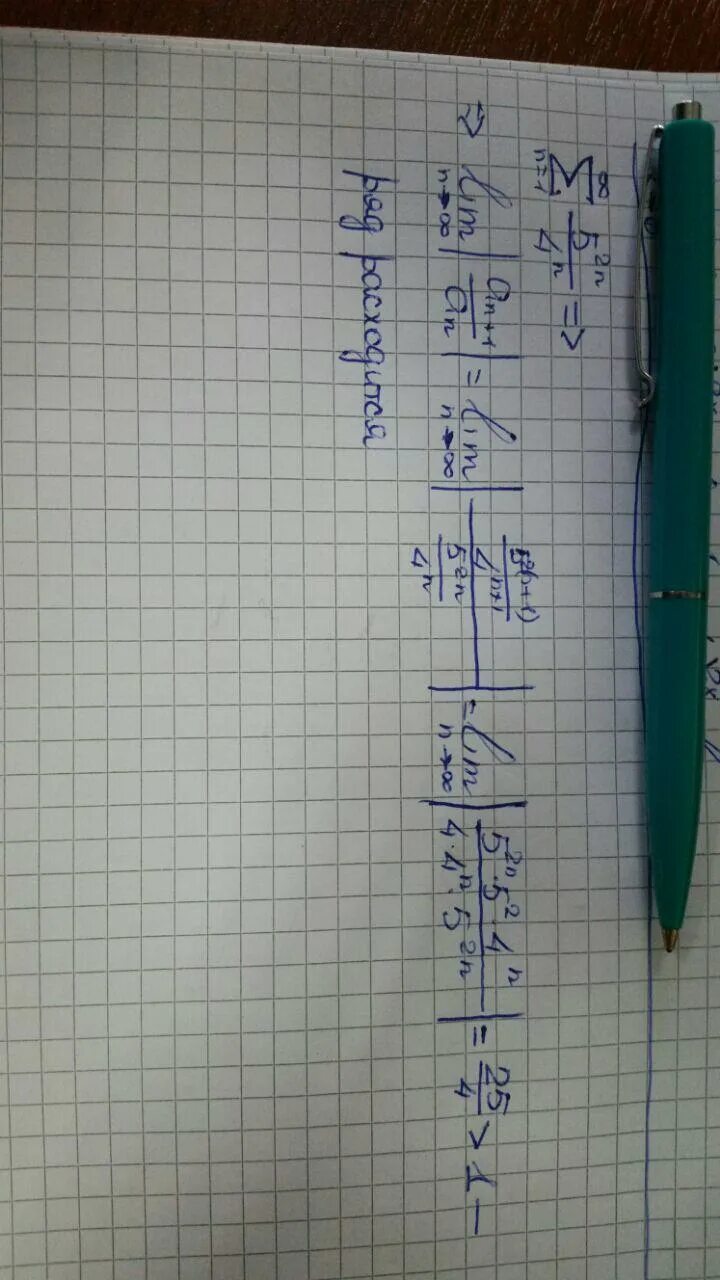 ∑_{n=1}^{∞} 5^{2n}/4^{n} =>
=> lim_{n→∞} |a_{n+1}/a_{n}| = lim_{n→∞} |(5^{2(n+1)}/4^{n+1})/(5^{2n}/4^{n})| = lim_{n→∞} |(5^{2n}·5^{2}·4^{n})/(4·4^{n}·5^{2n})| = 25/4 > 1 –
ряд расходится